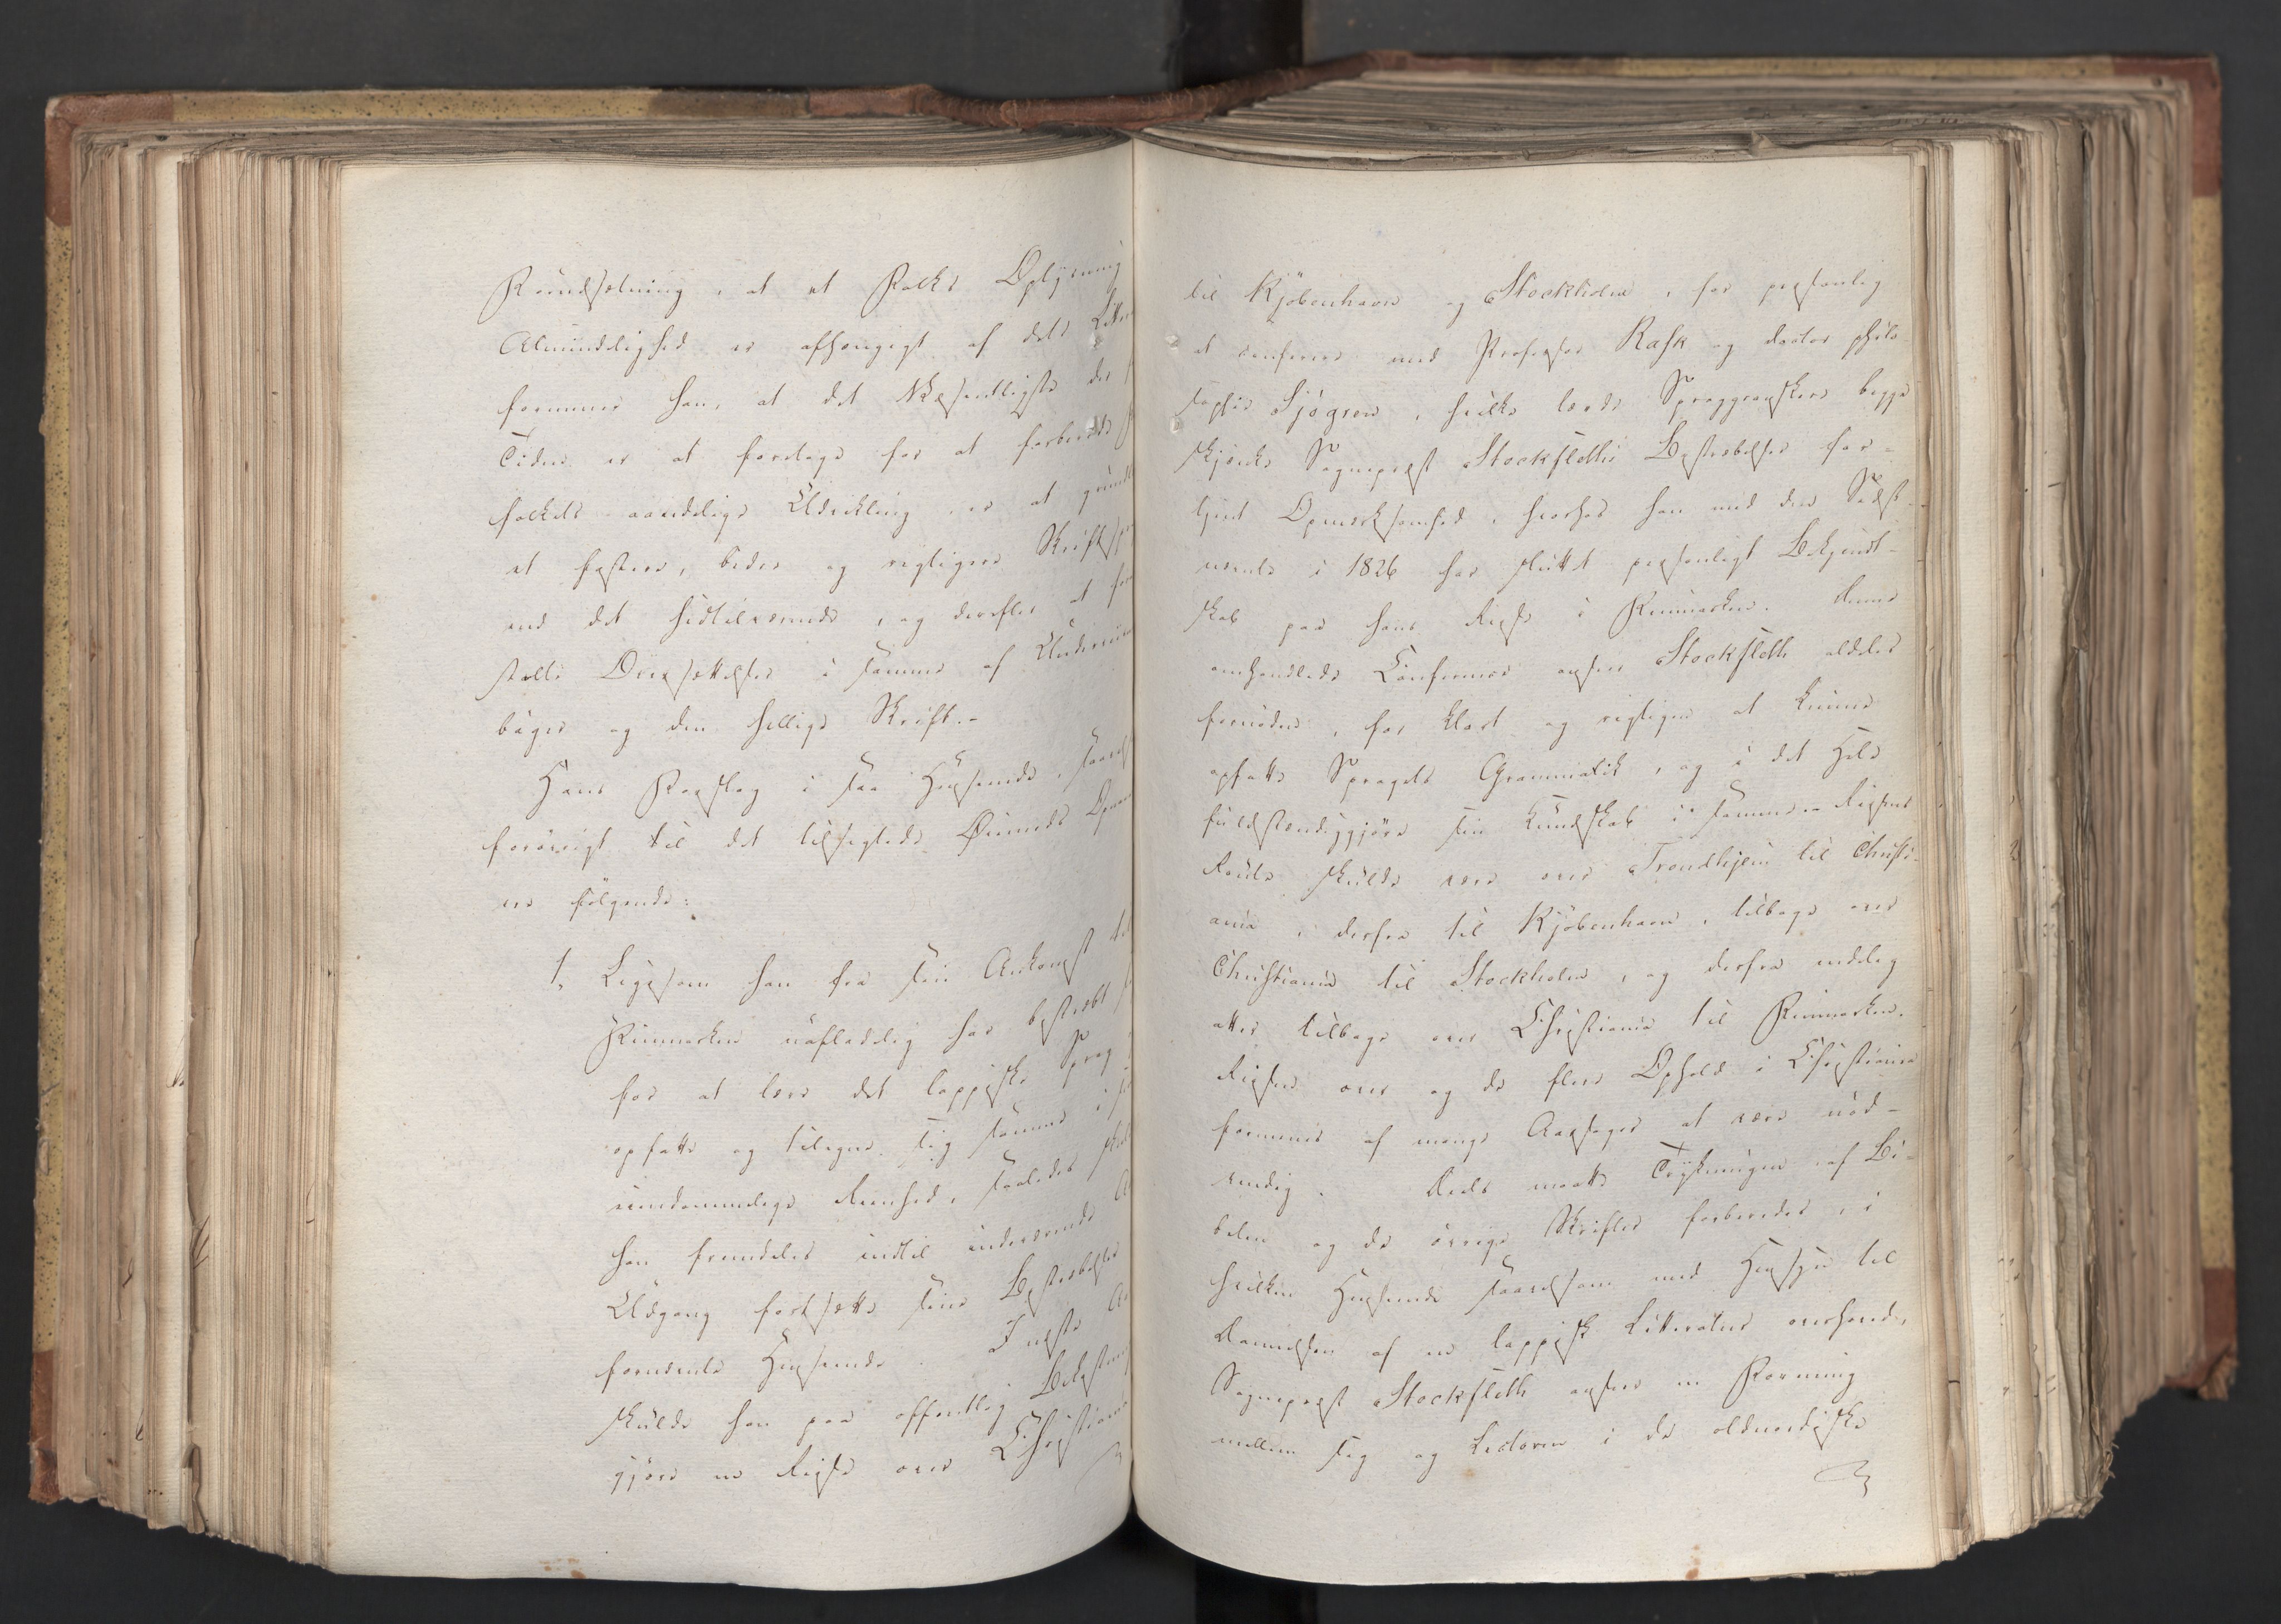 Forudsætning, at et Folks Oplysning
Almindelighed er afhængigt af dets Litte
formener han, at det Væsentligste der
Tiden er at foretage for at forberede
folkets aandelige Udvikling, er at grund
et fastere, bedre og rigtigere Skriftsp
end det hidtilværende, og derefter at for
stalte Oversættelser i samme af Underviis
bøger og den hellige Skrift.-
Hans Forslag i saa Henseende, saavel
forøvrigt til det tilsigtede Øiemeds Opna
ere følgende:
1, Ligesom han fra sin Ankomst til
Finmarken uafladelig har bestræbt
for at lære det lappiske Sprog
opfatte og tilegne sig samme i
eiendommelige Reenhed, saaledes skul
han fremdeles indtil indeværende A
Udgang fortsætte sine Bestræbelser
fornævnte Henseende. I næste A
skulde han paa offentlig Bekostning
gjøre en Reise over Christiania
til Kjöbenhavn og Stockholm, for personlig
at conferere med Professor Rask og doctor philo
sophiæ Sjögren, hvilke lærde Sproggranskere begge
skjænke Sognepræst Stockfleths Bestræbelser for-
tjent Opmærksomhed, hvorhos han med den Sidst-
nævnte i 1826 har sluttet personligt Bekjendt-
skab paa hans Reise i Finmarken. Denne
omhandlede Conference anseer Stockfleth aldeles
fornöden, for klart og rigtigen at kunne
opfatte Sprogets Grammatik, og i det Hele
fuldstændiggjöre sin Kundskab i samme.- Reisens
Route skulde være over Trondhjem til Christi-
ania, derfra til Kjöbenhavn, tilbage over
Christiania til Stockholm, og derfra endelig
atter tilbage over Christiania til Finmarken.
Reisen over og de flere Ophold i Christiania
formenes af mange Aarsager at være nöd-
vendig. Deels maatte Trykningen af Bi-
belen og de övrige Skrifter forberedes, i
hvilken Henseende saavelsom med Hensyn til
Dannelsen af en lappisk Litteratur overhoved,
Sognepræst Stockfleth anseer en Forening
mellem sig og Lectoren i de oldnordiske